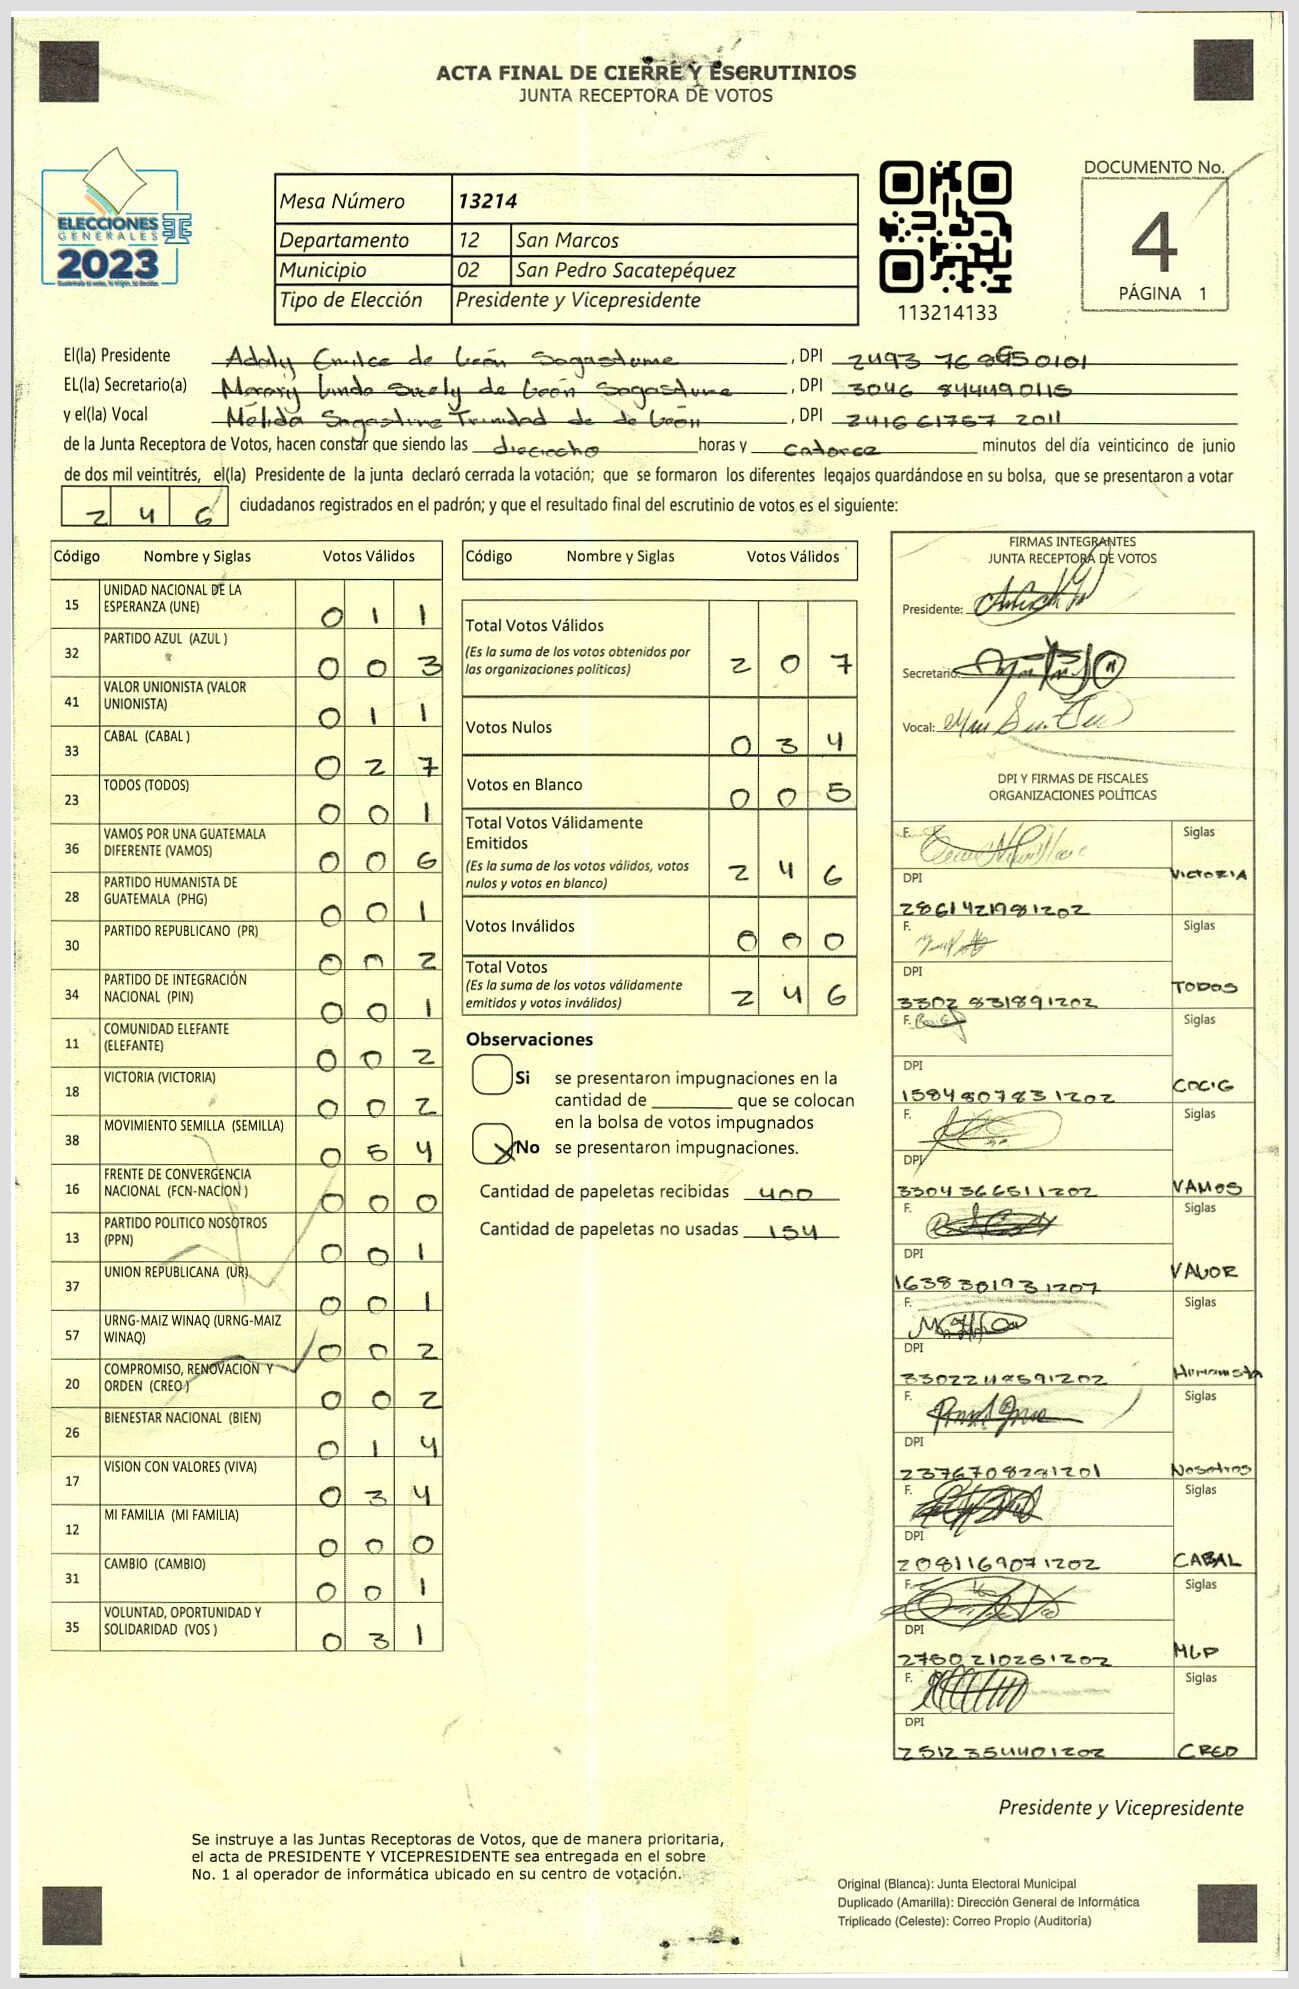 ACTA FINAL DE CIERRE Y ESCRUTINIOS
JUNTA RECEPTORA DE VOTOS
ELECCIONES
GENERALES
2023
Mesa Número 13214
Departamento 12 San Marcos
Municipio 02 San Pedro Sacatepéquez
Tipo de Elección Presidente y Vicepresidente
113214133
DOCUMENTO No.
4
PÁGINA 1
El(la) Presidente Adaly Emilce de León Sagastume, DPI
EL(la) Secretario(a) Linda Suely de León Sagastume, DPI 3046 844490115
y el(la) Vocal Mélida Sagastume Trinidad de de León, DPI 2416 61757 2011
de la Junta Receptora de Votos, hacen constar que siendo las dieciocho horas y catorce minutos del día veinticinco de junio
de dos mil veintitrés, el(la) Presidente de la junta declaró cerrada la votación; que se formaron los diferentes legajos guardándose en su bolsa, que se presentaron a votar
246 ciudadanos registrados en el padrón; y que el resultado final del escrutinio de votos es el siguiente:
Código Nombre y Siglas Votos Válidos
15 UNIDAD NACIONAL DE LA ESPERANZA (UNE) 0 1 1
32 PARTIDO AZUL (AZUL ) 0 0 3
41 VALOR UNIONISTA (VALOR UNIONISTA) 0 1 1
33 CABAL (CABAL ) 0 2 7
23 TODOS (TODOS) 0 0 1
36 VAMOS POR UNA GUATEMALA DIFERENTE (VAMOS) 0 0 6
28 PARTIDO HUMANISTA DE GUATEMALA (PHG) 0 0 1
30 PARTIDO REPUBLICANO (PR) 0 0 2
34 PARTIDO DE INTEGRACIÓN NACIONAL (PIN) 0 0 1
11 COMUNIDAD ELEFANTE (ELEFANTE) 0 0 2
18 VICTORIA (VICTORIA) 0 0 2
38 MOVIMIENTO SEMILLA (SEMILLA) 0 5 4
16 FRENTE DE CONVERGENCIA NACIONAL (FCN-NACION ) 0 0 0
13 PARTIDO POLITICO NOSOTROS (PPN) 0 0 1
37 UNION REPUBLICANA (UR) 0 0 1
57 URNG-MAIZ WINAQ (URNG-MAIZ WINAQ) 0 0 2
20 COMPROMISO, RENOVACION Y ORDEN (CREO ) 0 0 2
26 BIENESTAR NACIONAL (BIEN) 0 1 4
17 VISION CON VALORES (VIVA) 0 3 4
12 MI FAMILIA (MI FAMILIA) 0 0 0
31 CAMBIO (CAMBIO) 0 0 1
35 VOLUNTAD, OPORTUNIDAD Y SOLIDARIDAD (VOS ) 0 3 1
Código Nombre y Siglas Votos Válidos
Total Votos Válidos
(Es la suma de los votos obtenidos por
las organizaciones políticas) 2 0 7
Votos Nulos 0 3 4
Votos en Blanco 0 0 5
Total Votos Válidamente
Emitidos
(Es la suma de los votos válidos, votos
nulos y votos en blanco) 2 4 6
Votos Inválidos 0 0 0
Total Votos
(Es la suma de los votos válidamente
emitidos y votos inválidos) 2 4 6
Observaciones
Si se presentaron impugnaciones en la
cantidad de ________ que se colocan
en la bolsa de votos impugnados
X No se presentaron impugnaciones.
Cantidad de papeletas recibidas 400
Cantidad de papeletas no usadas 154
FIRMAS INTEGRANTES
JUNTA RECEPTORA DE VOTOS
Presidente:
Secretario:
Vocal:
DPI Y FIRMAS DE FISCALES
ORGANIZACIONES POLÍTICAS
F. Siglas
DPI VICTORIA
2861421981202
F. Siglas
DPI TODOS
3302 831891202
F. Siglas
DPI COCIG
1584807831202
F. Siglas
DPI VAMOS
3304366511202
F. Siglas
DPI VALOR
1638301931207
F. Siglas
DPI Humanista
3302248591202
F. Siglas
DPI Nosotros
2376708281201
F. Siglas
DPI CABAL
2081169071202
F. Siglas
DPI MLP
2750210251202
F. Siglas
DPI CREO
2512354401202
Presidente y Vicepresidente
Se instruye a las Juntas Receptoras de Votos, que de manera prioritaria,
el acta de PRESIDENTE Y VICEPRESIDENTE sea entregada en el sobre
No. 1 al operador de informática ubicado en su centro de votación.
Original (Blanca): Junta Electoral Municipal
Duplicado (Amarilla): Dirección General de Informática
Triplicado (Celeste): Correo Propio (Auditoría)